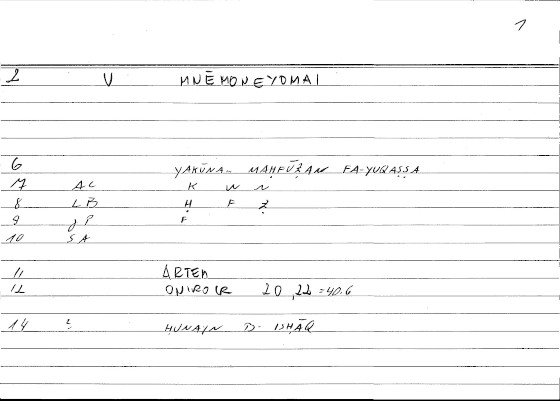 1
2 V MNĒMONEYOMAI
6 YAKŪNA.. MAḤFŪẒAN FA-YUQAṢṢA
7 AC K W N
8 LB Ḥ F Ẓ
9 JP F
10 SA
11 ARTEM
12 ONIROCR 20,22 = 40.6
14 2 ḤUNAIN B- ISḤĀQ